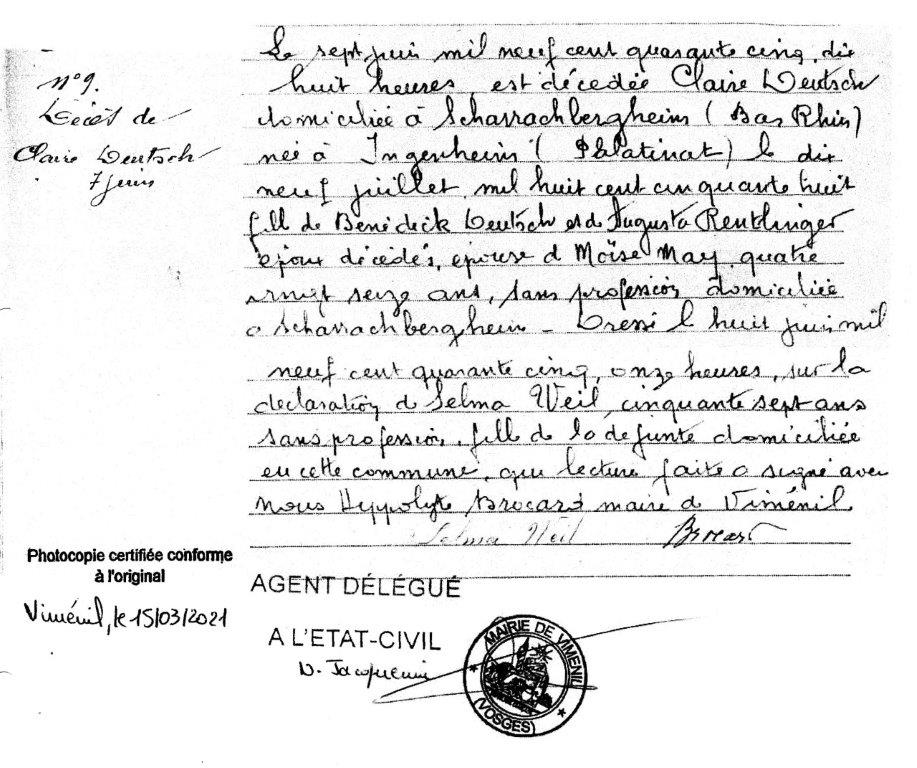 n° 9.
Décès de
Claire Deutsch
7 juin
Le sept juin mil neuf cent quarante cinq, dix
huit heures, est décédée Claire Deutsch
domiciliée à Scharrachbergheim (Bas Rhin)
née à Ingenheim (Palatinat) le dix
neuf juillet mil huit cent cinquante huit
fille de Bénédick Deutsch et de Augusta Reutlinger
époux décédés, épouse d Moïse May, quatre
vingt seize ans, sans profession domiciliée
a Scharrachbergheim - Dressé le huit juin mil
neuf cent quarante cinq, onze heures, sur la
déclaration de Selma Weil, cinquante sept ans
sans profession, fille de la défunte domiciliée
en cette commune, qui lecture faite a signé avec
nous Hyppolyte Brocard maire de Viménil
Selma Weil Brocard
Photocopie certifiée conforme
à l'original
Viménil, le 15/03/2021
AGENT DÉLÉGUÉ
A L'ETAT-CIVIL
D. Jacquemin
MAIRIE DE VIMENIL
(VOSGES)